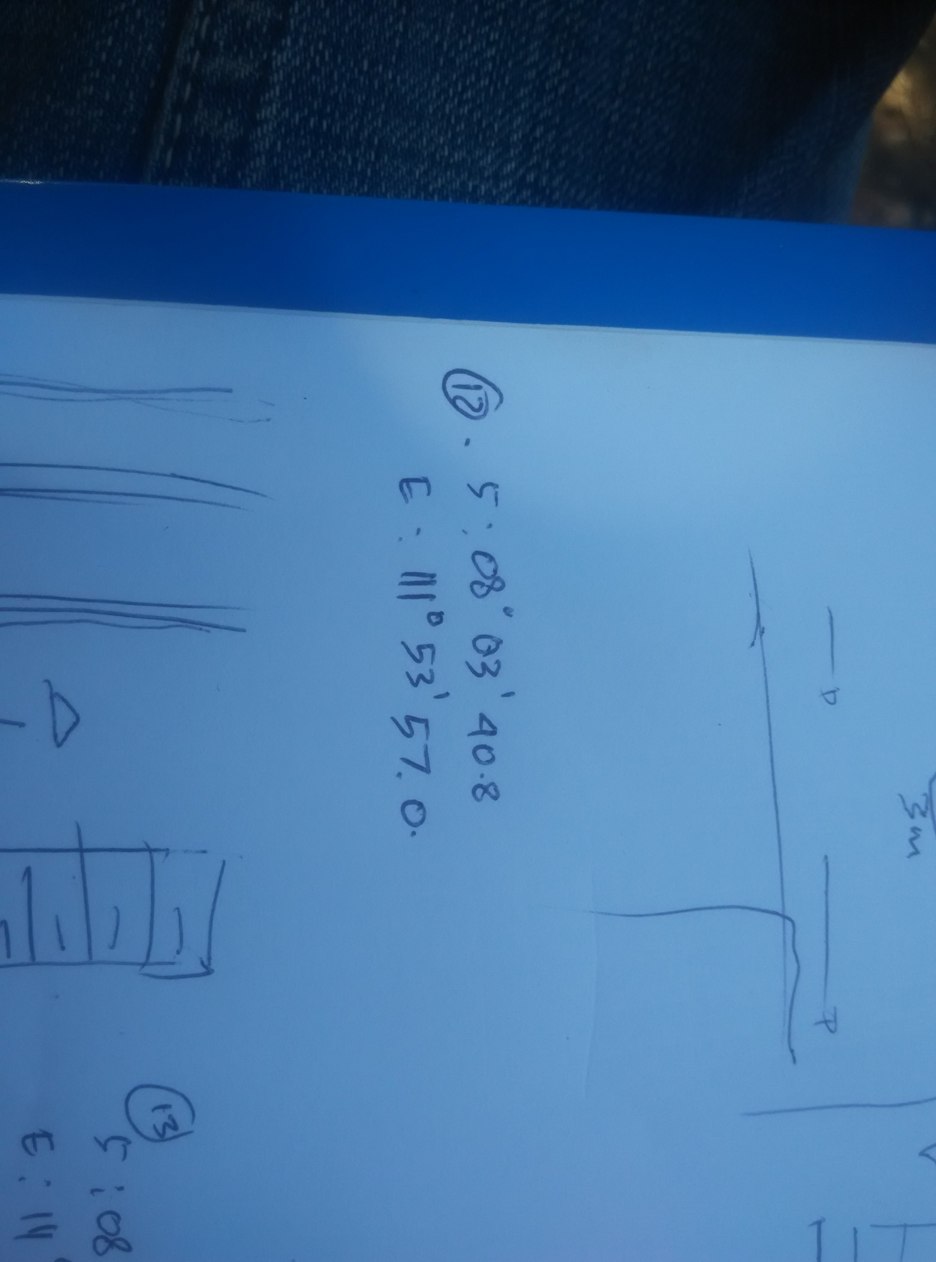 3m
⑫. S : 08° 03' 40.8
E : 111° 53' 57.0.
⑬
S : 08
E : 111